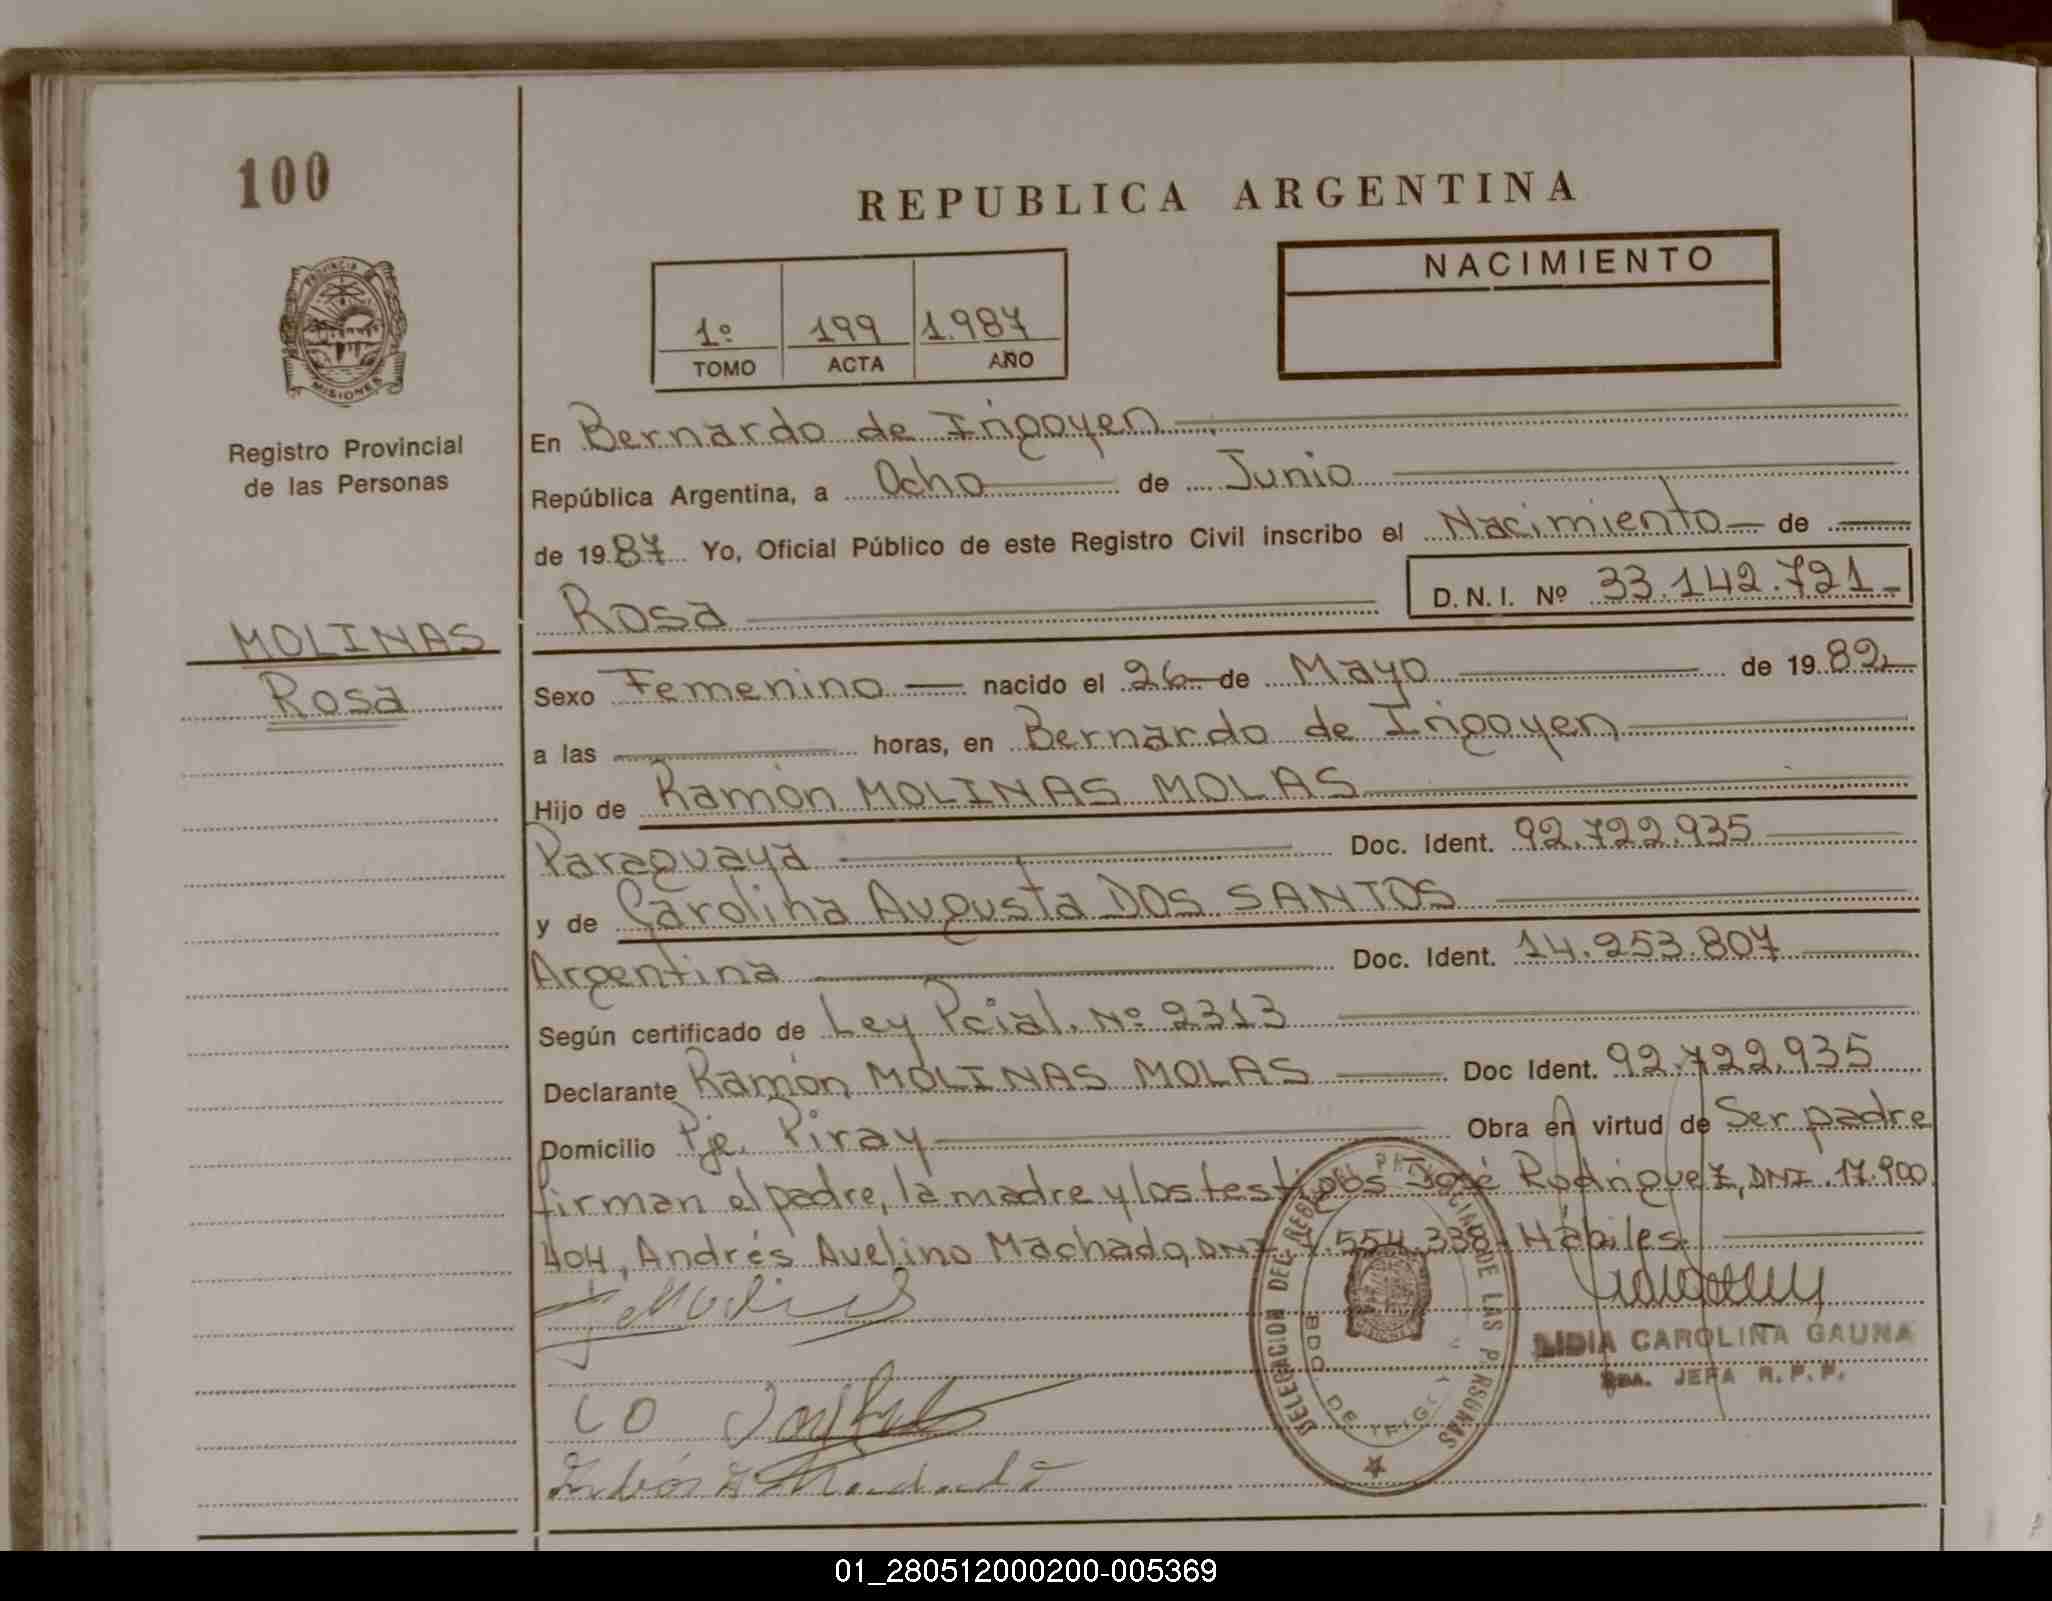 100
REPUBLICA ARGENTINA
NACIMIENTO
PROVINCIA DE
MISIONES
1º 199 1.987
TOMO ACTA AÑO
Registro Provincial
de las Personas
En Bernardo de Irigoyen
República Argentina, a Ocho de Junio
de 1987 Yo, Oficial Público de este Registro Civil inscribo el Nacimiento de
Rosa D.N.I. Nº 33.142.721
MOLINAS
Rosa
Sexo Femenino nacido el 26 de Mayo de 1982
a las horas, en Bernardo de Irigoyen
Hijo de Ramón MOLINAS MOLAS
Paraguaya Doc. Ident. 92.722.935
y de Carolina Augusta DOS SANTOS
Argentina Doc. Ident. 14.253.807
Según certificado de Ley Pcial. Nº 2313
Declarante Ramón MOLINAS MOLAS Doc Ident. 92.722.935
Domicilio Pje. Piray Obra en virtud de Ser padre
firman el padre, la madre y los testigos José Rodriguez, DNI. 17.900.
404, Andrés Avelino Machado, DNI 7.554.338 Hábiles
DELEGACION DEL REGISTRO PROVINCIAL DE LAS PERSONAS
BDO. DE IRIGOYEN
LIDIA CAROLINA GAUNA
JEFA R.P.P.
01_280512000200-005369